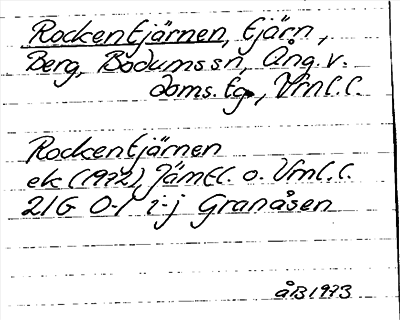 Rockentjärnen, tjärn,
Berg, Bodums sn, Ång. v.
doms. tg, Vrnl. l.
Rockentjärnen
ek (1972) Jämtl. o. Vrnl. l.
21G 0-1 i-j Granåsen
åB 1973